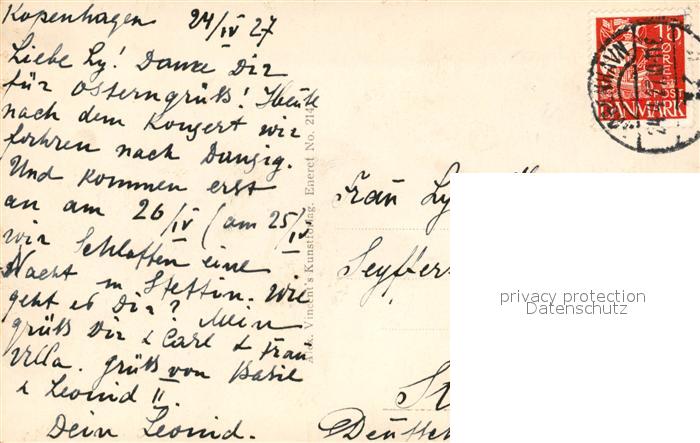 Kopenhagen 24/IV 27
Liebe Ly! Danke Dir
für Osterngrüß! Heute
nach dem Konzert wir
fahren nach Danzig.
Und kommen erst
an am 26/IV (am 25/IV
wir Schlaffen eine
Nacht in Stettin. Wie
geht es Dir? Mein
grüß Dir & Carl & Frau
Ulla. grüß von Basil
& Leonid II.
Dein Leonid.
Alex. Vincent's Kunstforlag. Eneret No. 214
15
ØRE
POST
DANMARK
KØBENHAVN
Frau Ly
Seyffer
St
Deutsch
privacy protection
Datenschutz